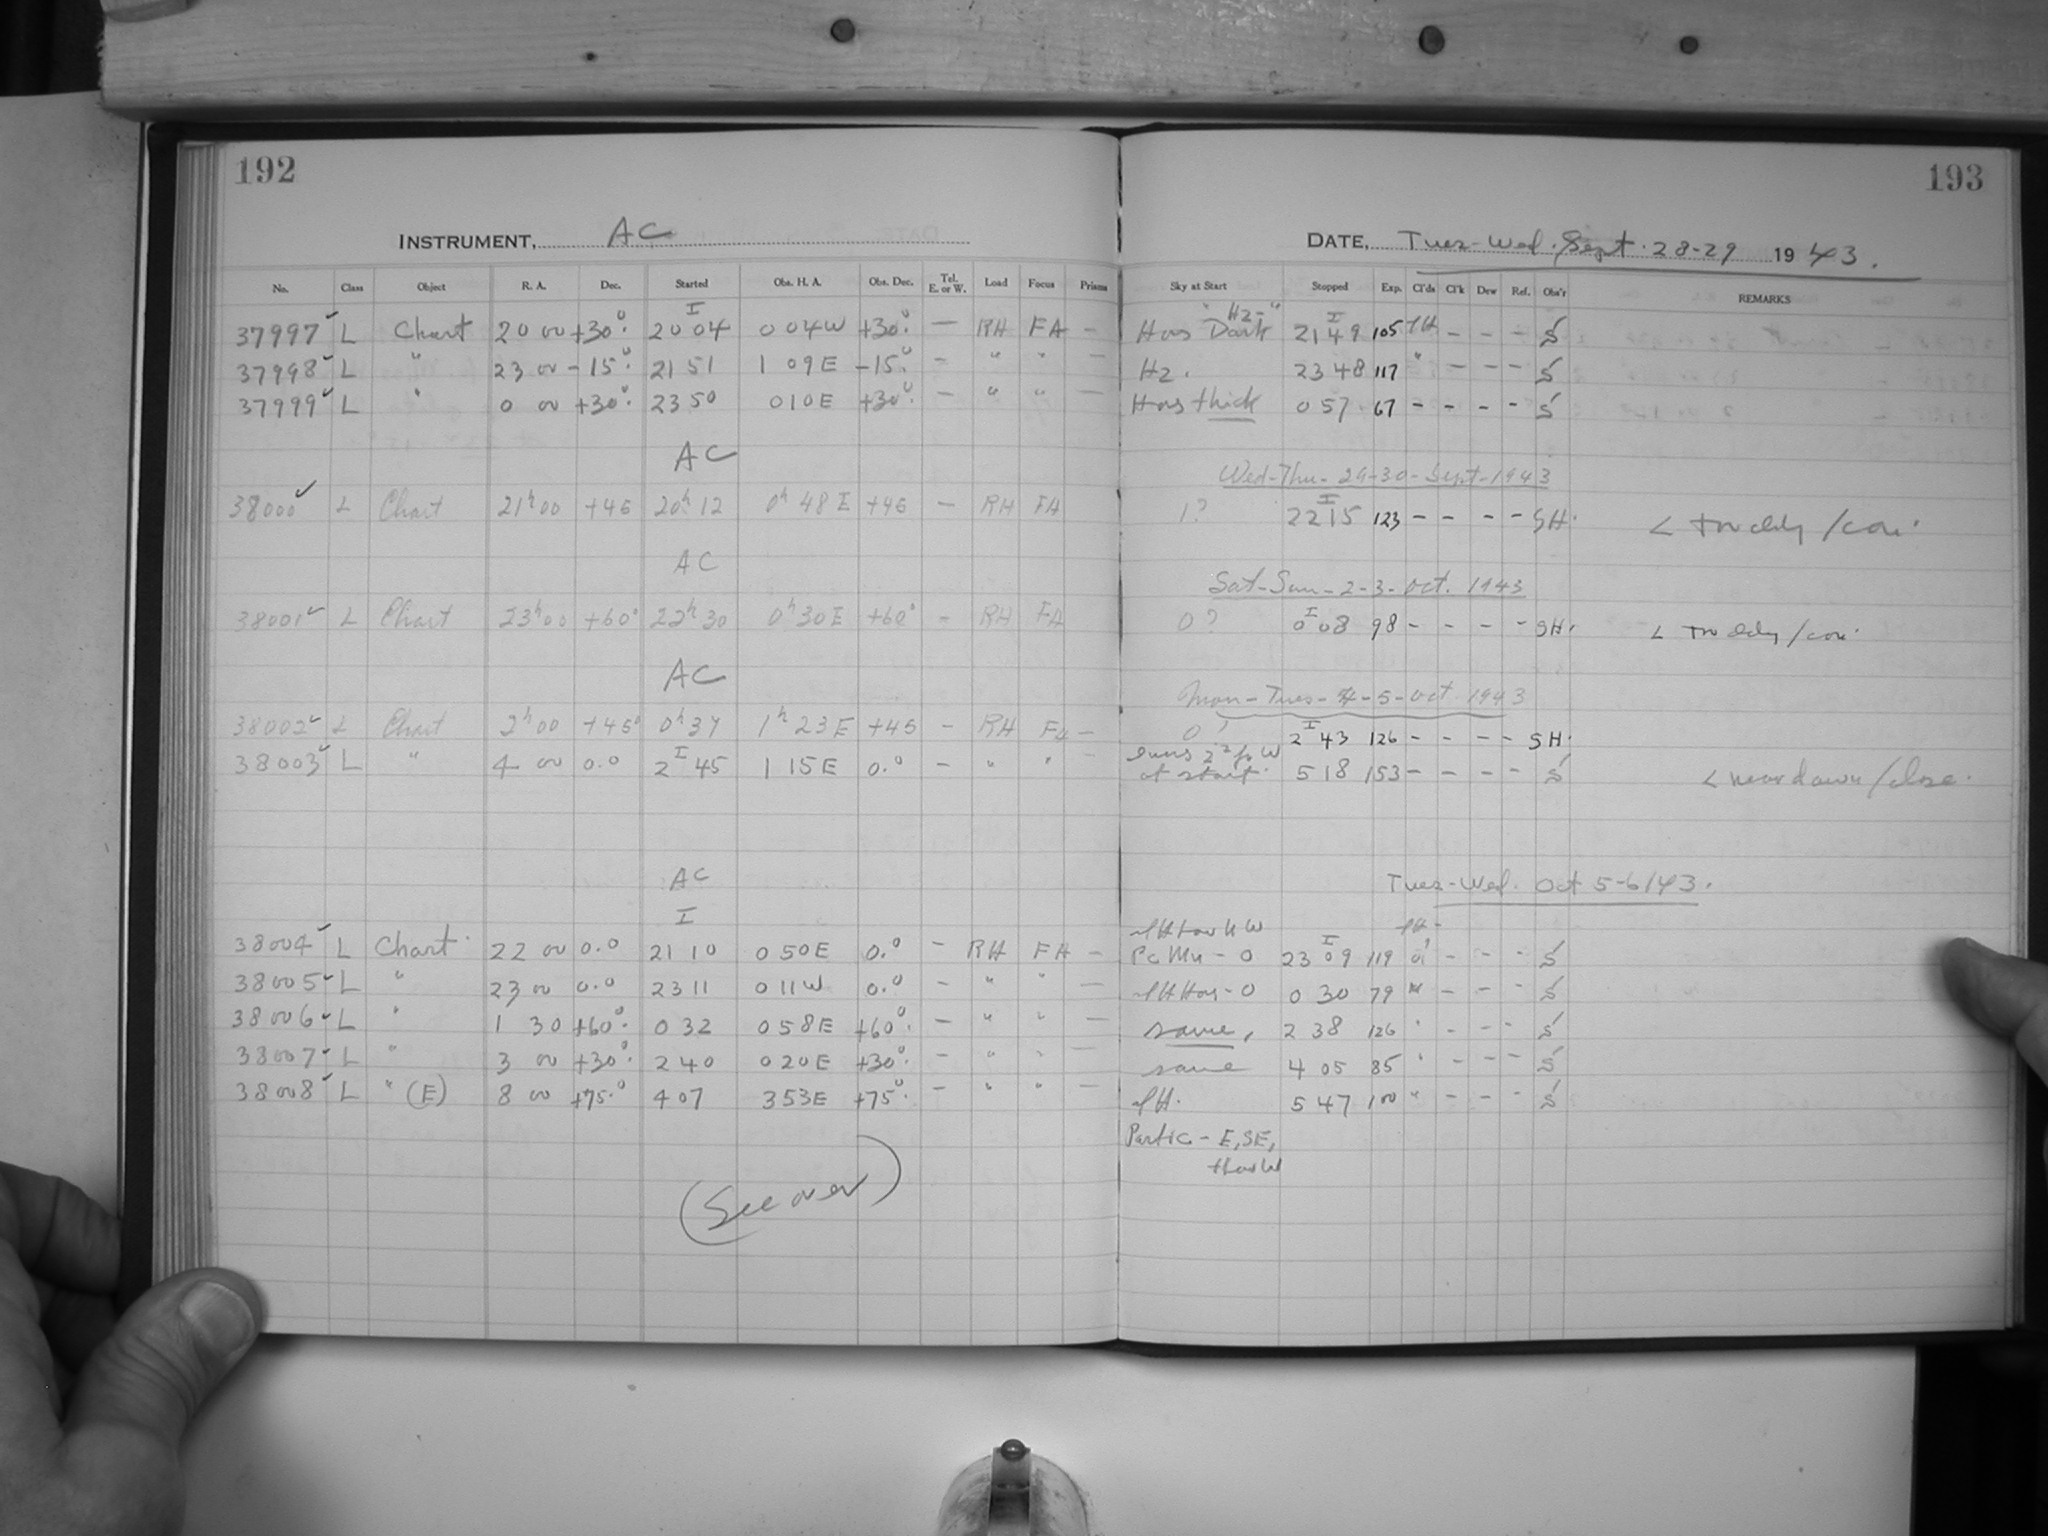 192
INSTRUMENT, AC
No. Class Object R. A. Dec. Started Obs. H. A. Obs. Dec. Tel. E. or W. Load Focus Prisms
I
37997 ✓ L Chart 20 00 +30°. 20 04 0 04W +30°. — RH FA –
37998 ✓ L " 23 00 –15°. 21 51 1 09E –15°. – " " –
37999 ✓ L " 0 00 +30°. 23 50 0 10E +30°. – " " –
AC
38000 ✓ L Chart 21ʰ00 +46 20ʰ12 0ʰ 48E +46 – RH FA
AC
38001 ✓ L Chart 23ʰ00 +60° 22ʰ30 0ʰ30E +60° – RH FA
AC
38002 ✓ L Chart 2ʰ00 +45° 0ʰ37 1ʰ23E +45 – RH FA –
38003 ✓ L " 4 00 0.0 2 I 45 1 15E 0.° – " " –
AC
I
38004 ✓ L Chart 22 00 0.0 21 10 0 50E 0.° – RH FA –
38005 ✓ L " 23 00 0.0 23 11 0 11W 0.° – " " –
38006 ✓ L " 1 30 +60°. 0 32 0 58E +60°. – " " –
38007 ✓ L " 3 00 +30°. 2 40 0 20E +30°. – " " –
38008 ✓ L " (E) 8 00 +75.° 4 07 3 53E +75°. – " " –
(See over)
193
DATE, Tues-Wed. Sept. 28-29 1943.
Sky at Start Stopped Exp. Cl'ds Cl'k Dew Ref. Obs'r REMARKS
"Hz-" I
Has Dark 21 49 105 – – – S
Hz. 23 48 117 " – – – S
Has thick 0 57 67 – – – – S
Wed-Thu- 29-30- Sept-1943
I
1? 22 15 123 – – – – SH.
Sat-Sun-2-3-Oct. 1943
0? 0 I 08 98 – – – – SH.
Mon-Tues-4-5-Oct 1943
0? 2 I 43 126 – – – – SH.
at start. 5 18 153 – – – – S < near dawn/close.
Tues-Wed. Oct 5-6/43.
I
– 0 23 09 119 – – – S
– 0 0 30 79 " – – – S
same, 2 38 126 " – – – S
same 4 05 85 " – – – S
5 47 100 " – – – S
– E, SE,